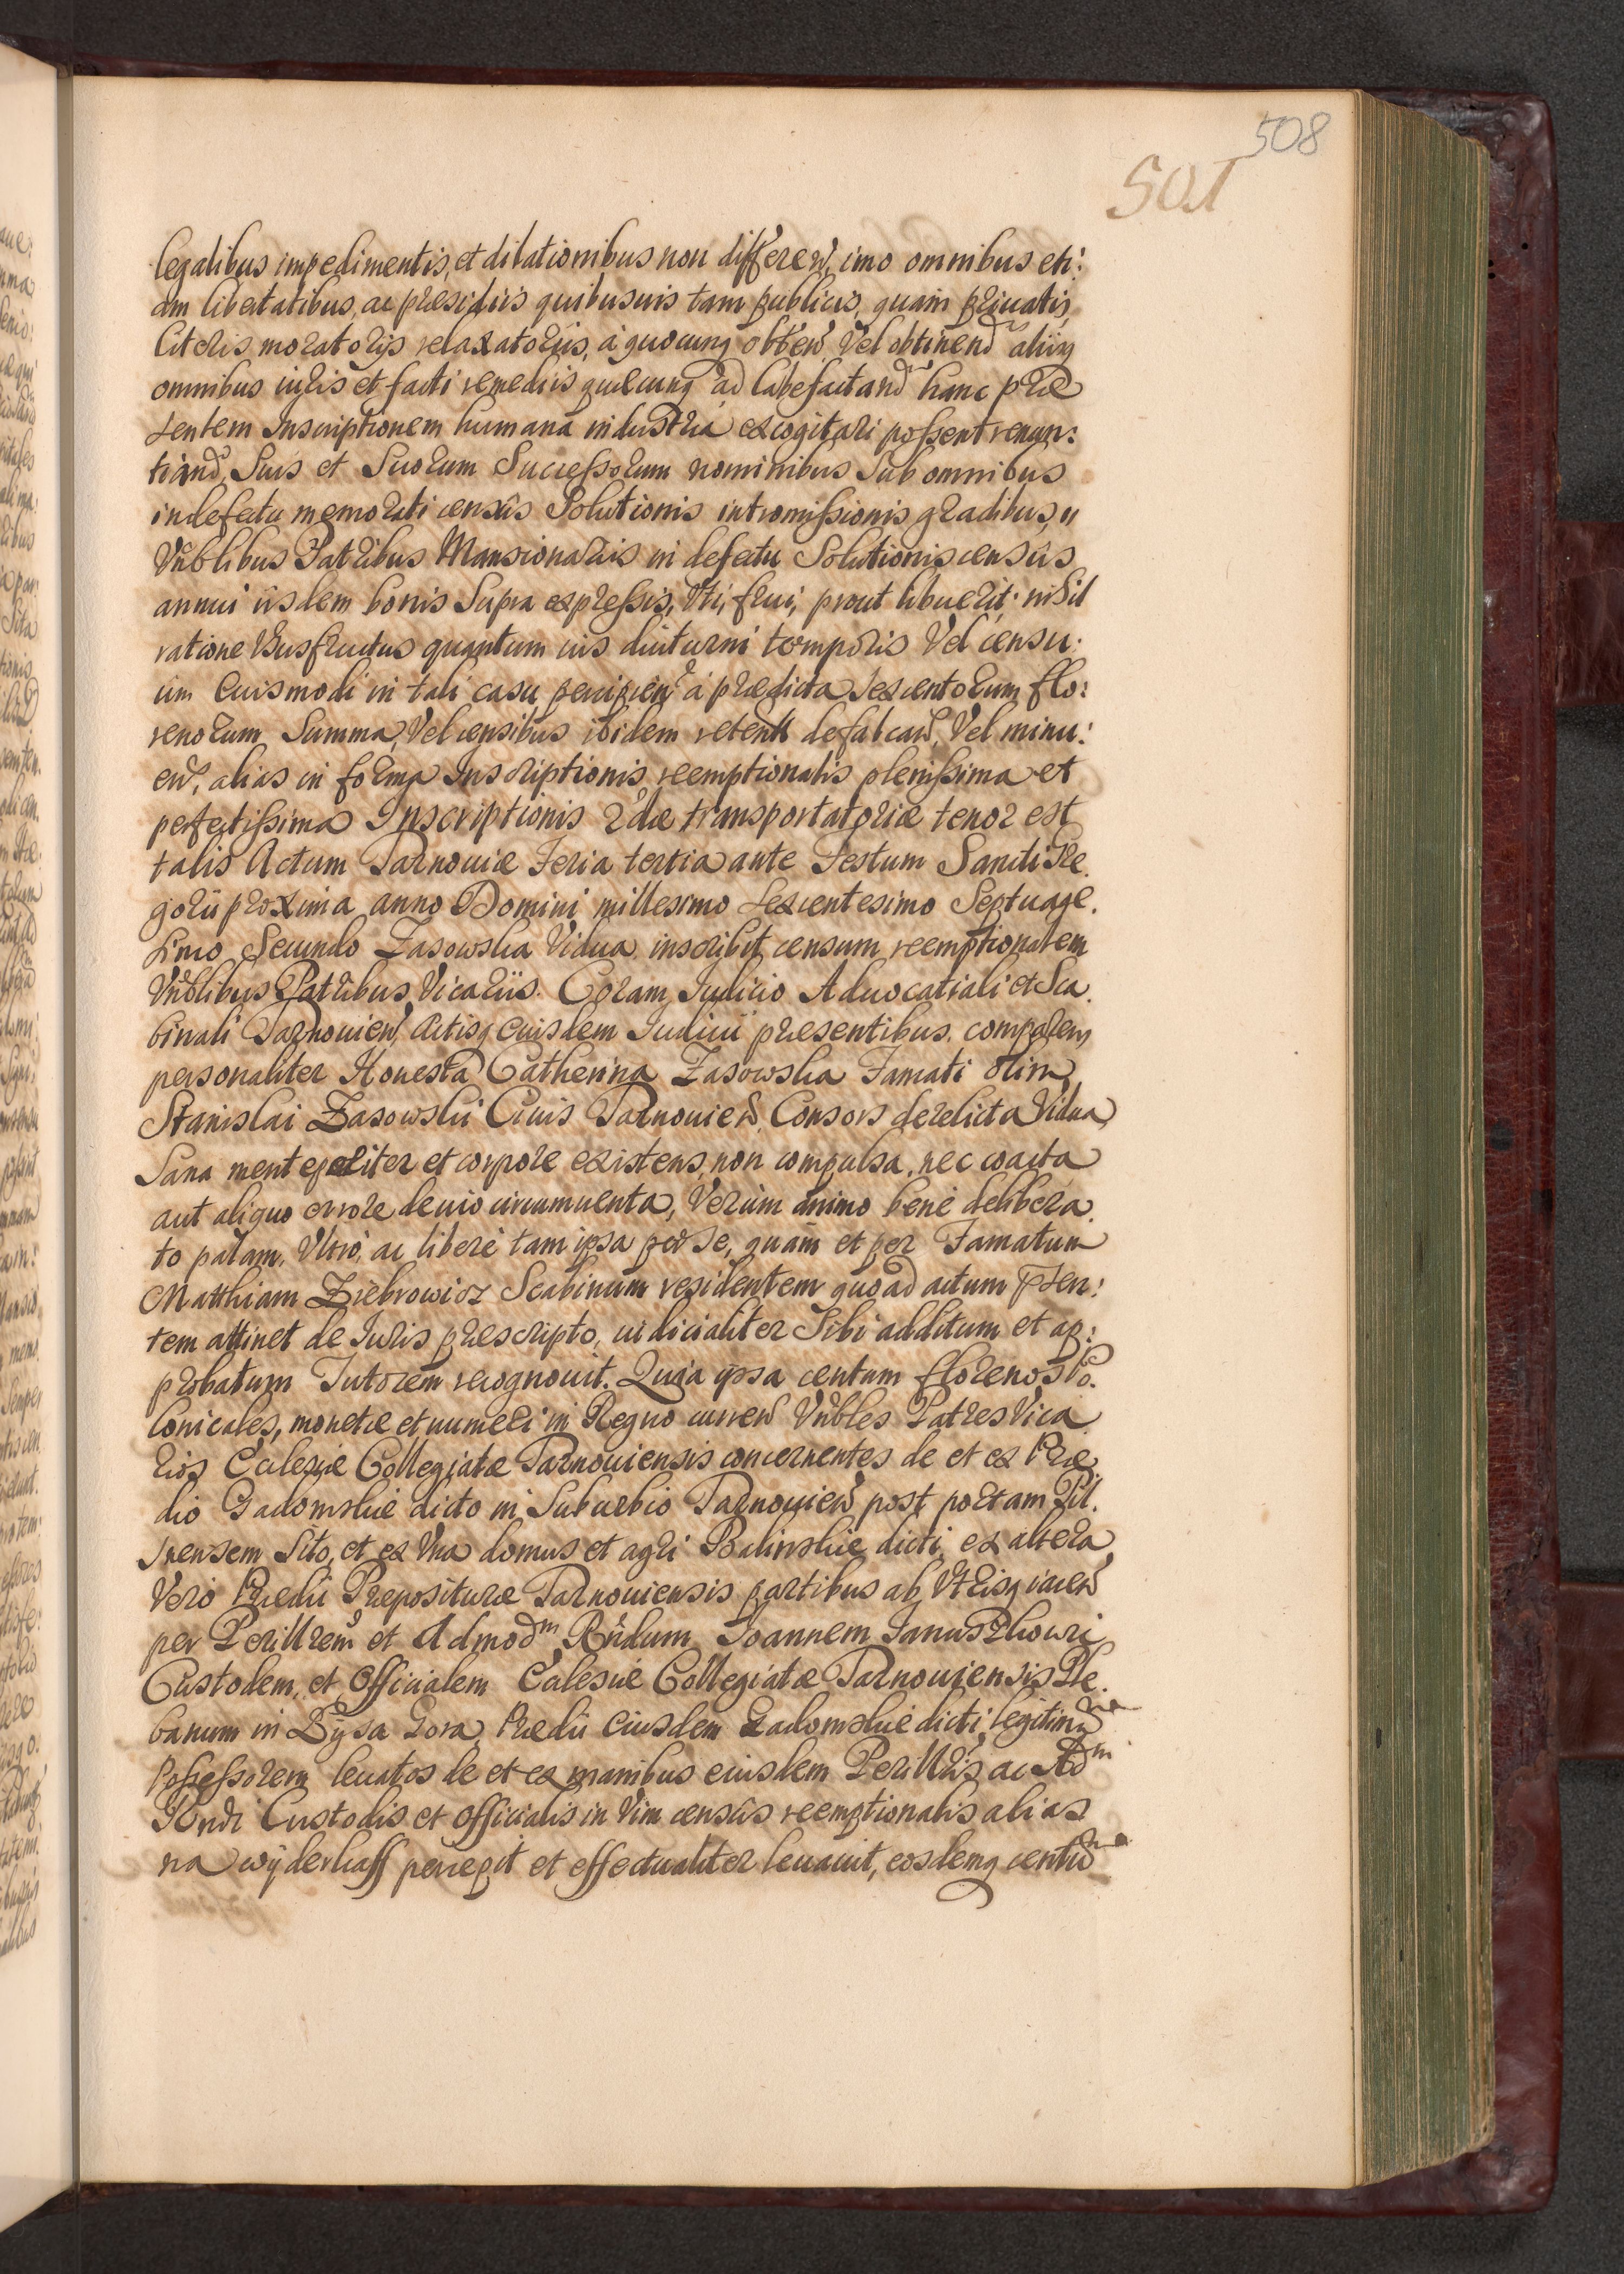 508
501
legalibus impedimentis, et dilationibus non differen, imo omnibus eti:
am libertatibus, ac præsidiis quibusuis tam publicis, quam priuatis,
literis moratorijs relaxatoriis, à quocunq obten, Vel obtinend alijsq
omnibus iuris et facti remediis quæcunq ad labefactand hanc præ
sentem Inscriptionem humana industria excogitari possent renun:
tiand, Suis et Suorum Successorum nominibus Sub omnibus
in defectu memorati censûs Solutionis intromissionis gradibus,
Vnblibus Patribus Mansionariis in defectu Solutionis censûs
annui iisdem bonis Supra expressis, Vti, frui, prout libuerit. nihil
ratione Vsusfructus quantum uis diuturni temporis Vel censu:
um Cuismodi in tali casu percipien à prædicta Sexcentorum flo:
renorum Summa, Vel censibus ibidem retent defalcan, Vel minu:
en, alias in forma Inscriptionis reemptionalis plenissima et
perfectissima Inscriptionis 2dæ transportatoriæ tenor est
talis Actum Tarnouiæ Feria tertia ante Festum Sancti Gre
gorii proxima anno Domini millesimo Sexcentesimo Septuage.
Simo Secundo Zasowska Vidua inscribit censum reemptionalem
Vnblibus Patribus Vicariis. Coram Iudicio Aduocatiali et Sca
binali Tarnouien, Actisq Cuisdem Iudicii præsentibus. comparens
personaliter Honesta Catherina Zasowska Famati olim
Stanislai Zasowski Ciuis Tarnouien, Consors derelicta Vidua
Sana mente pariter et corpore existens, non compulsa, nec coacta
aut aliquo errore deuio circumuenta, Verùm animo benè delibera
to palam, Vltrò, ac liberè tam ipsa per Se, quàm et per Famatum
Matthiam Ziebrowicz Scabinum residentem quoad actum Præsen:
tem attinet de Iuris præscripto, iudicialiter Sibi additum et ap:
probatum Tutorem recognouit. Quia ipsa centum florenos Po.
lonicales, monetæ et numeri in Regno curren Vnbles Patres Vica
rios Ecclesiæ Collegiatæ Tarnouiensis concernentes de et ex Præ
dio Gadomskie dicto in Suburbio Tarnouien post portam Pil.
snensem Sito, et ex Vna domus et agri Balinskie dicti, ex altera
Verò Prædii Præpositurae Tarnouiensis partibus ab Vtrisq iacen
per Perillrem et Admodm Rndum Ioannem Januszkowic
Custodem, et Officialem Ecclesiæ Collegiatæ Tarnouiensis Ple.
banum in Lysa Gora, Prædii Eiusdem Gadomskie dicti, legitimu
Possessorem leuatos de et ex manibus eiusdem Perillris ac Adm
Rndi Custodis et Officialis in Vim censûs reemptionalis alias
na wyderkaff percepit et effectualiter leuauit, eosdemq centu